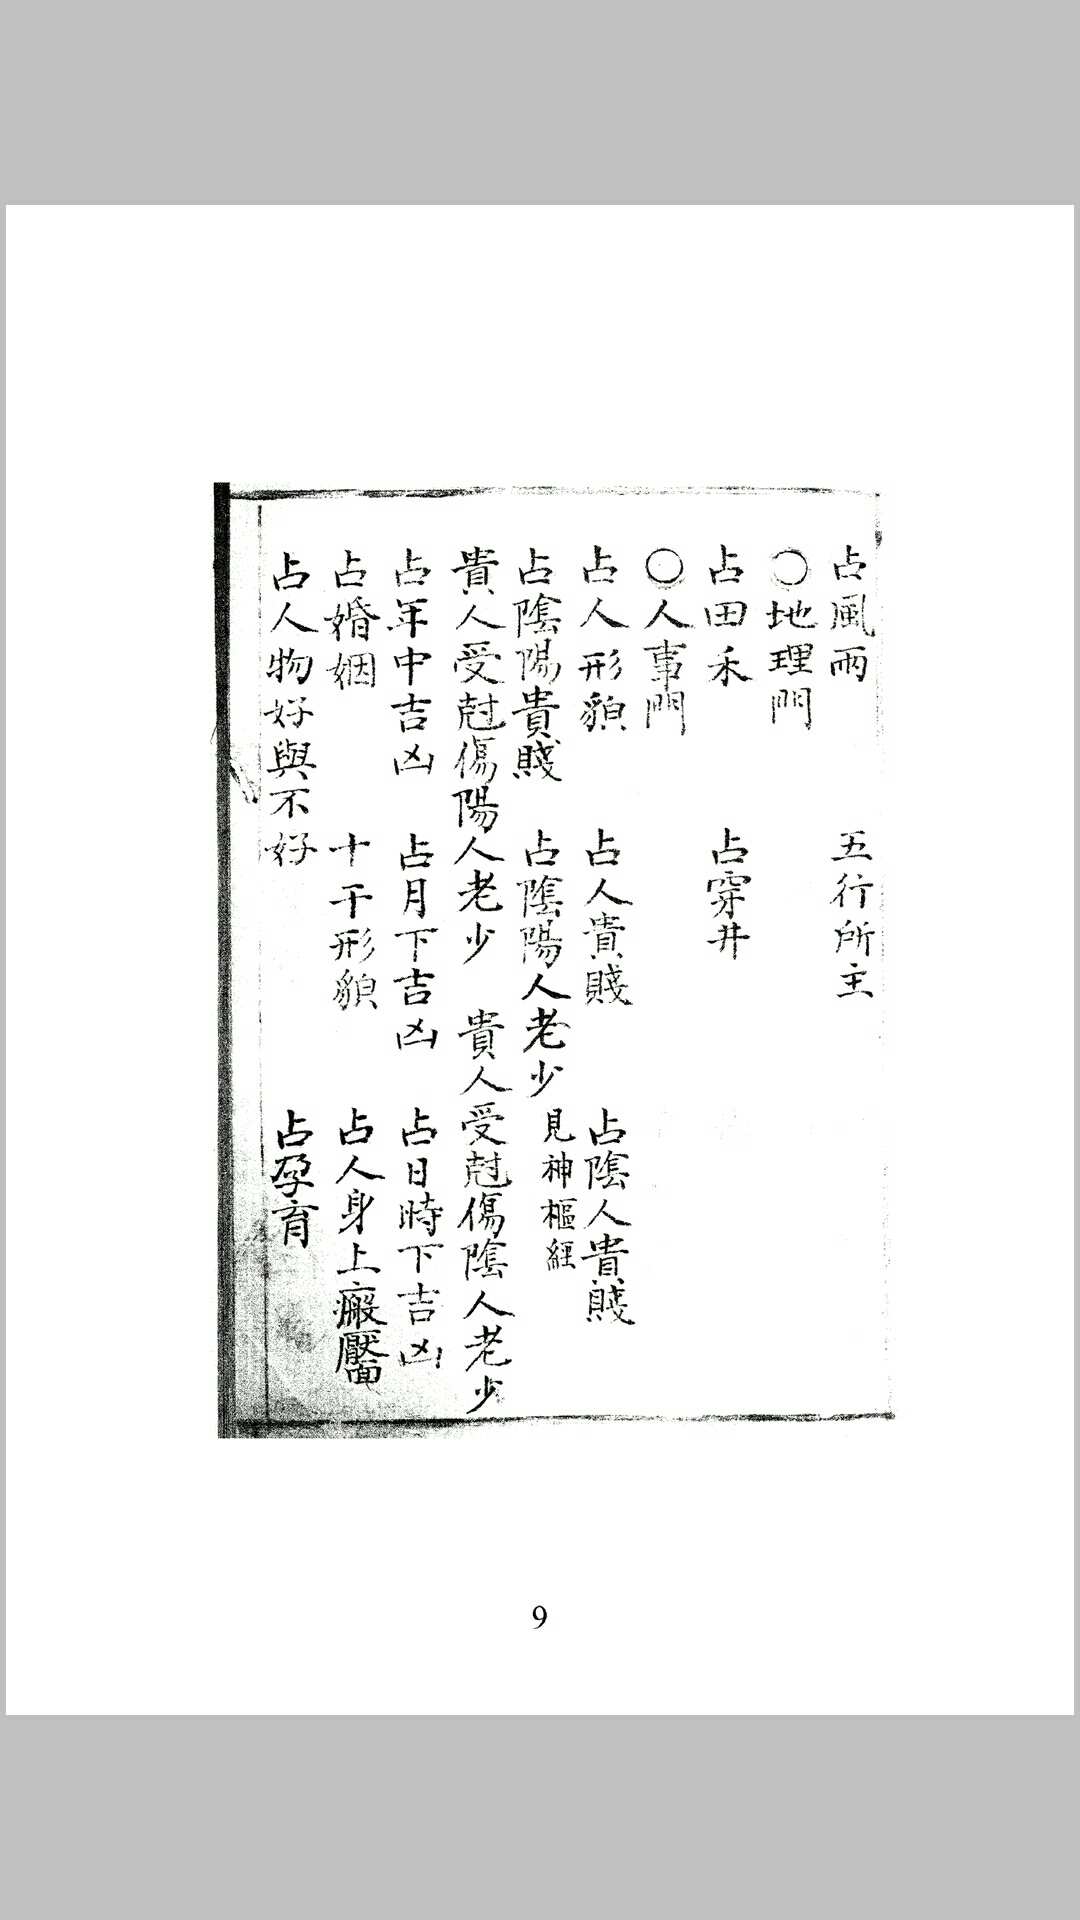 占風雨　五行所主
〇地理門
占田禾　占穿井
〇人事門
占人形貌　占人貴賤　占陰人貴賤
占陰陽貴賤　占陰陽人老少　見神樞經
貴人受尅傷陽人老少　貴人受尅傷陰人老少
占年中吉凶　占月下吉凶　占日時下吉凶
占婚姻　十干形貌　占人身上瘢靨
占人物好與不好　占孕育
9